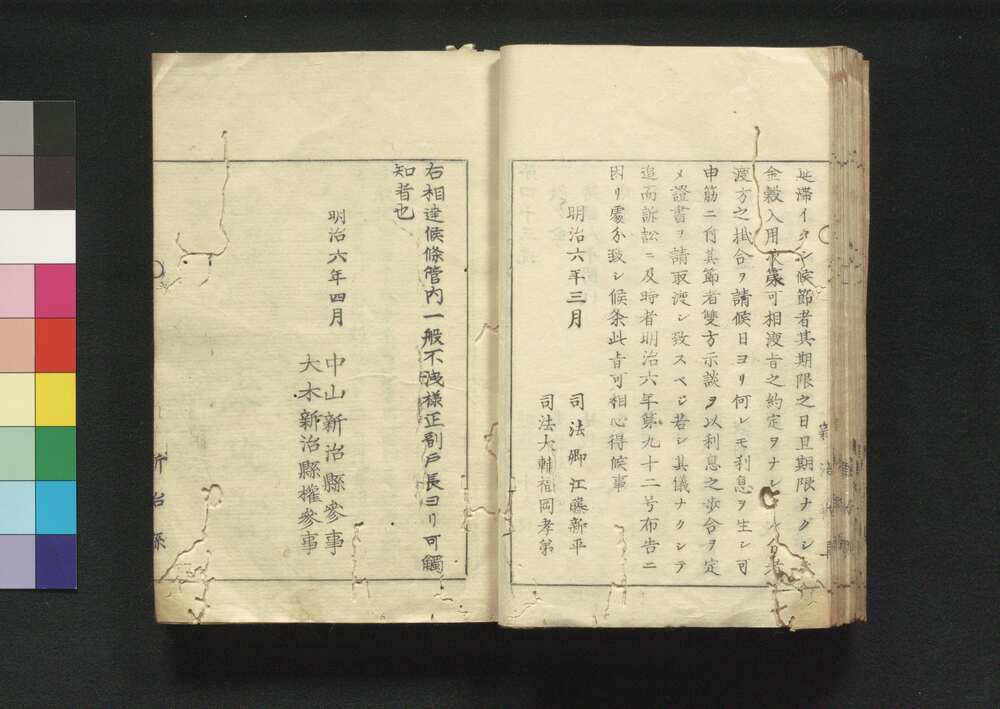 延滞イタシ候節者其期限之日且期限ナクシテ
金穀入用次第可相渡旨之約定ヲナシ
渡方之掛合ヲ請候日ヨリ何レモ利息ヲ生シ可
申筋ニ付其節者雙方示談ヲ以利息之歩合ヲ定
メ證書ヲ請取渡シ致スベシ若シ其儀ナクシテ
追而訴訟ニ及時者明治六年第九十二号布告ニ
因リ處分致シ候条此旨可相心得候事
明治六年三月
司法卿江藤新平
司法大輔福岡孝弟
右相達候條管内一般不洩様正副戸長ヨリ可觸
知者也
明治六年四月
中山新治縣參事
大木新治縣權參事
新治縣